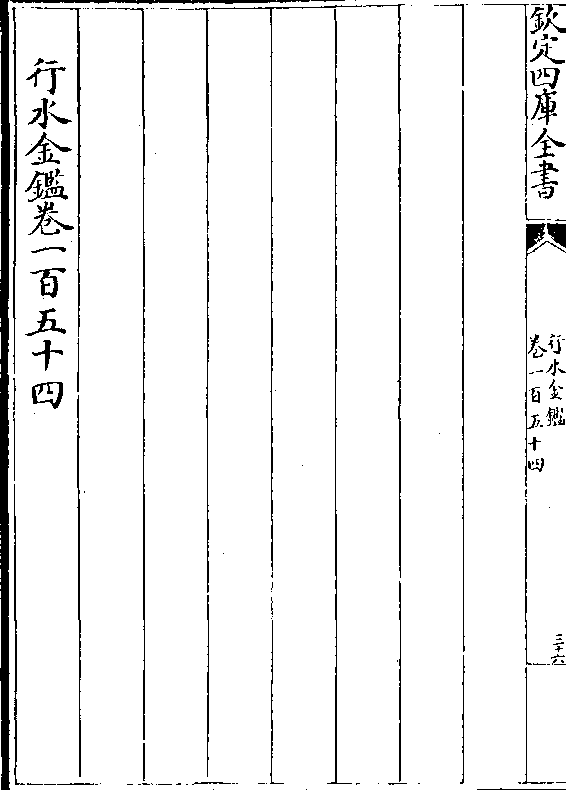 欽定四庫全書
行水金鑑
卷一百五十四
三十六
行水金鑑卷一百五十四